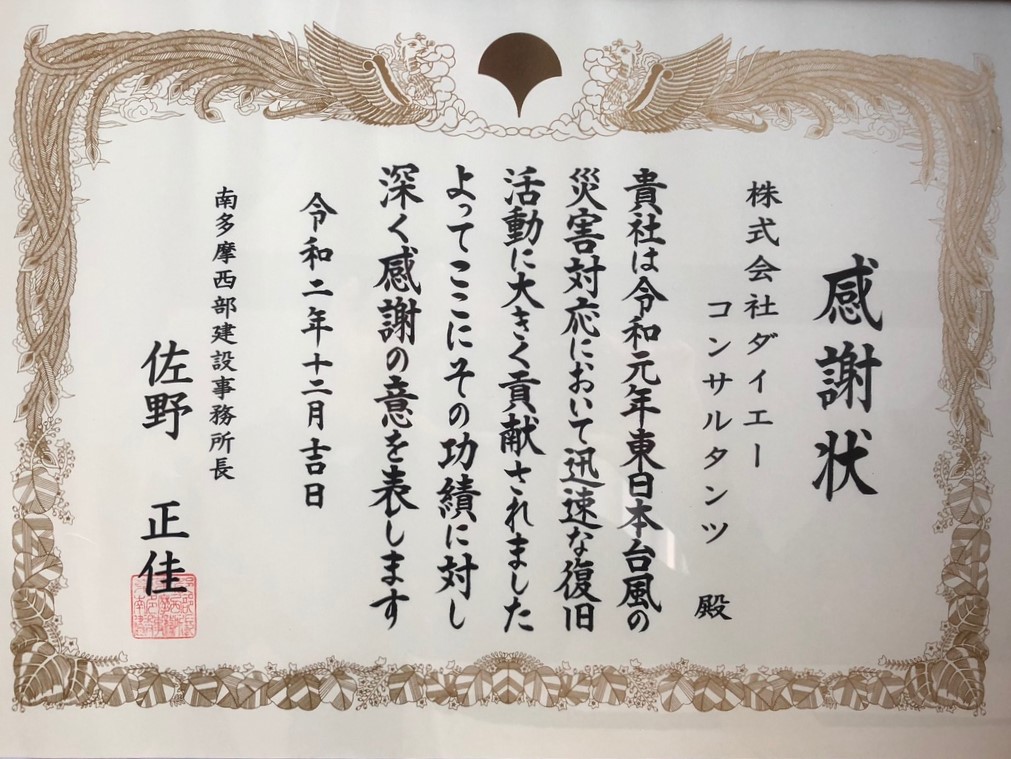 感謝状
株式会社ダイエー
コンサルタンツ 殿
貴社は令和元年東日本台風の
災害対応において迅速な復旧
活動に大きく貢献されました
よってここにその功績に対し
深く感謝の意を表します
令和二年十二月吉日
南多摩西部建設事務所長
佐野 正佳